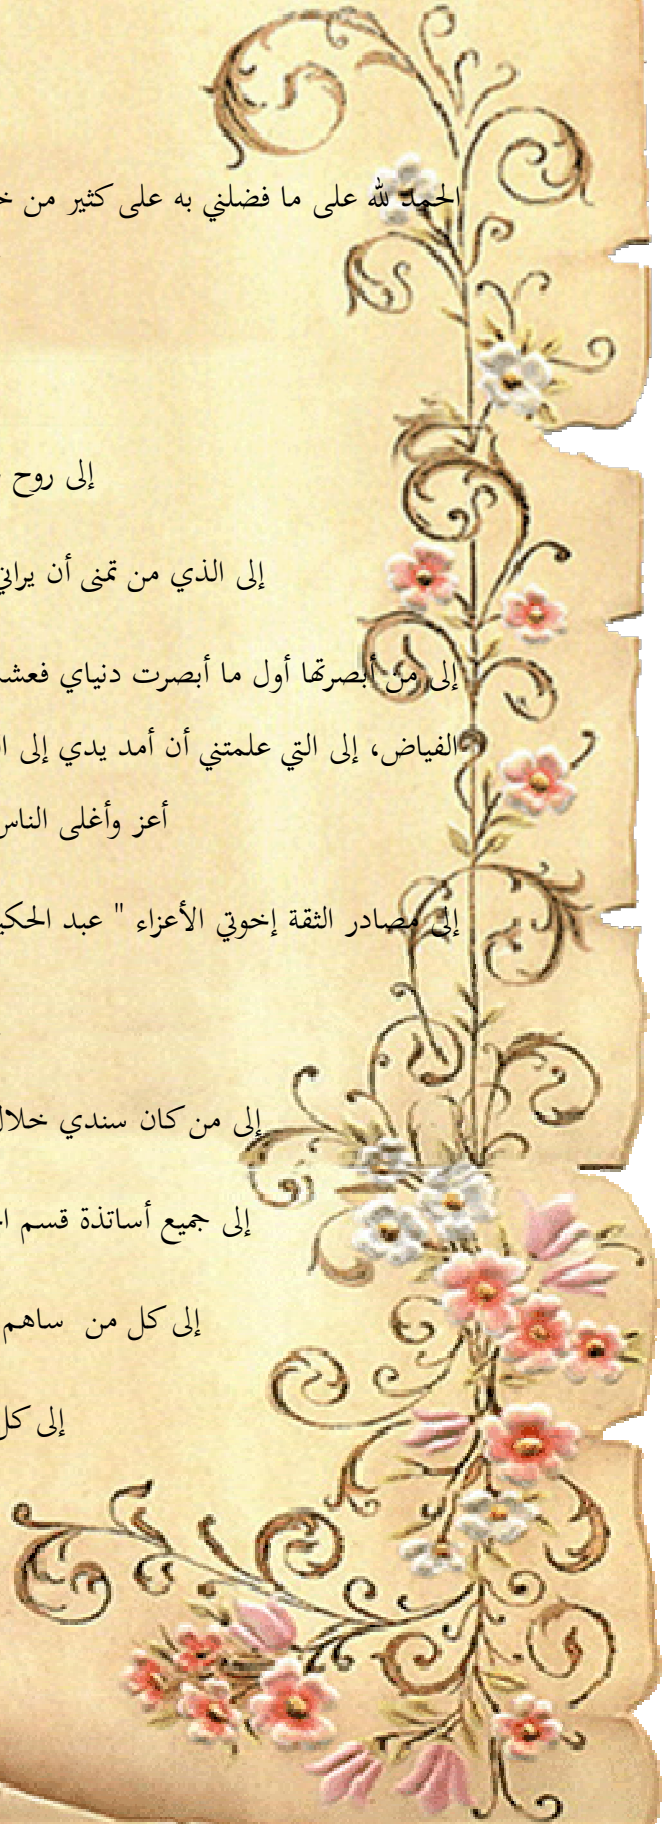 الحمد لله على ما فضلني به على كثير من
إلى روح
إلى الذي من تمنى أن يراني
إلى من أبصرتها أول ما أبصرت دنياي
الفياض، إلى التي علمتني أن أمد يدي إلى
أعز وأغلى الناس
إلى مصادر الثقة إخوتي الأعزاء " عبد
إلى من كان سندي خلال
إلى جميع أساتذة قسم
إلى كل من ساهم
إلى كل